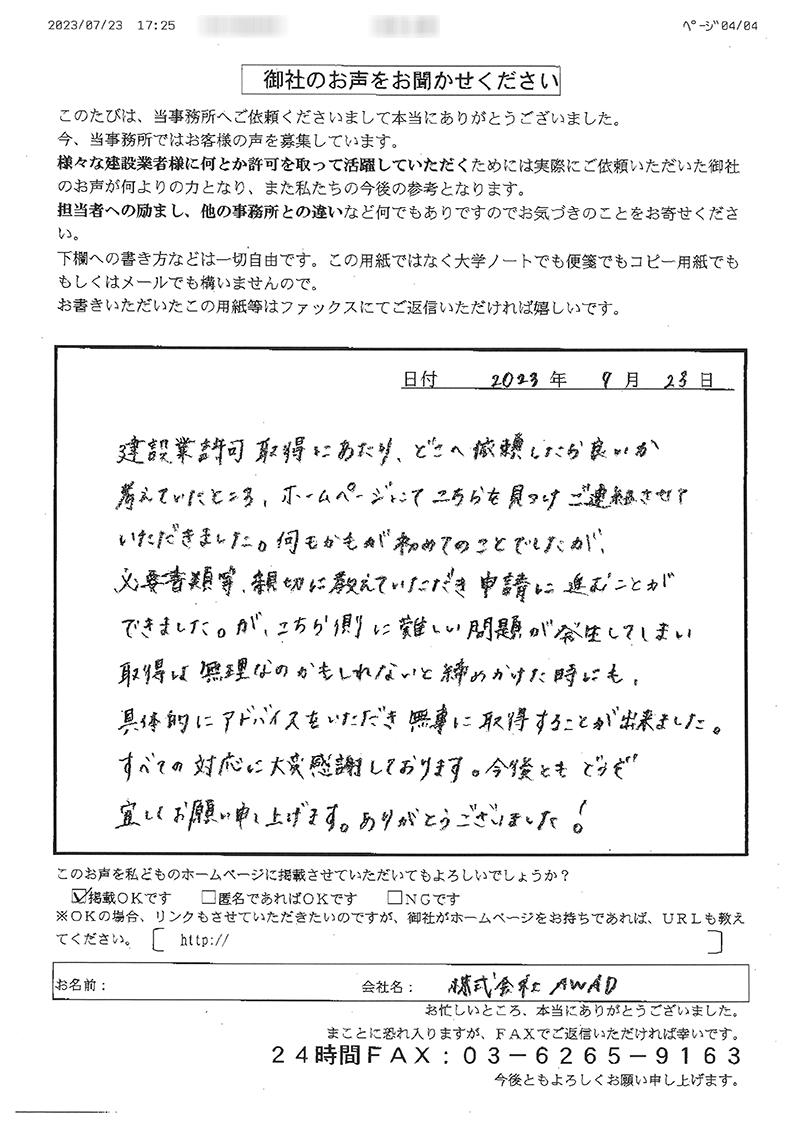 2023/07/23 17:25
ページ 04/04
御社のお声をお聞かせください
このたびは、当事務所へご依頼くださいまして本当にありがとうございました。
今、当事務所ではお客様の声を募集しています。
様々な建設業者様に何とか許可を取って活躍していただくためには実際にご依頼いただいた御社
のお声が何よりの力となり、また私たちの今後の参考となります。
担当者への励まし、他の事務所との違いなど何でもありですのでお気づきのことをお寄せくださ
い。
下欄への書き方などは一切自由です。この用紙ではなく大学ノートでも便箋でもコピー用紙でも
もしくはメールでも構いませんので。
お書きいただいたこの用紙等はファックスにてご返信いただければ嬉しいです。
日付 2023 年 7 月 23 日
建設業許可 取得にあたり、どこへ依頼したら良いか
考えていたところ、ホームページにて こちらを見つけ ご連絡させて
いただきました。何もかもが初めてのことでしたが、
必要書類等、親切に教えていただき 申請に 進むことが
できました。が、こちら側に難しい問題が発生してしまい
取得は無理なのかもしれないと締めかけた時にも、
具体的にアドバイスをいただき 無事に取得することが出来ました。
すべての対応に大変感謝しております。今後とも どうぞ
宜しくお願い申し上げます。ありがとうございました!
このお声を私どものホームページに掲載させていただいてもよろしいでしょうか?
☑掲載OKです □匿名であればOKです □NGです
※OKの場合、リンクもさせていただきたいのですが、御社がホームページをお持ちであれば、URLも教え
てください。 [ http:// ]
お名前: 会社名: 株式会社 AWAD
お忙しいところ、本当にありがとうございました。
まことに恐れ入りますが、FAXでご返信いただければ幸いです。
24時間FAX:03-6265-9163
今後ともよろしくお願い申し上げます。